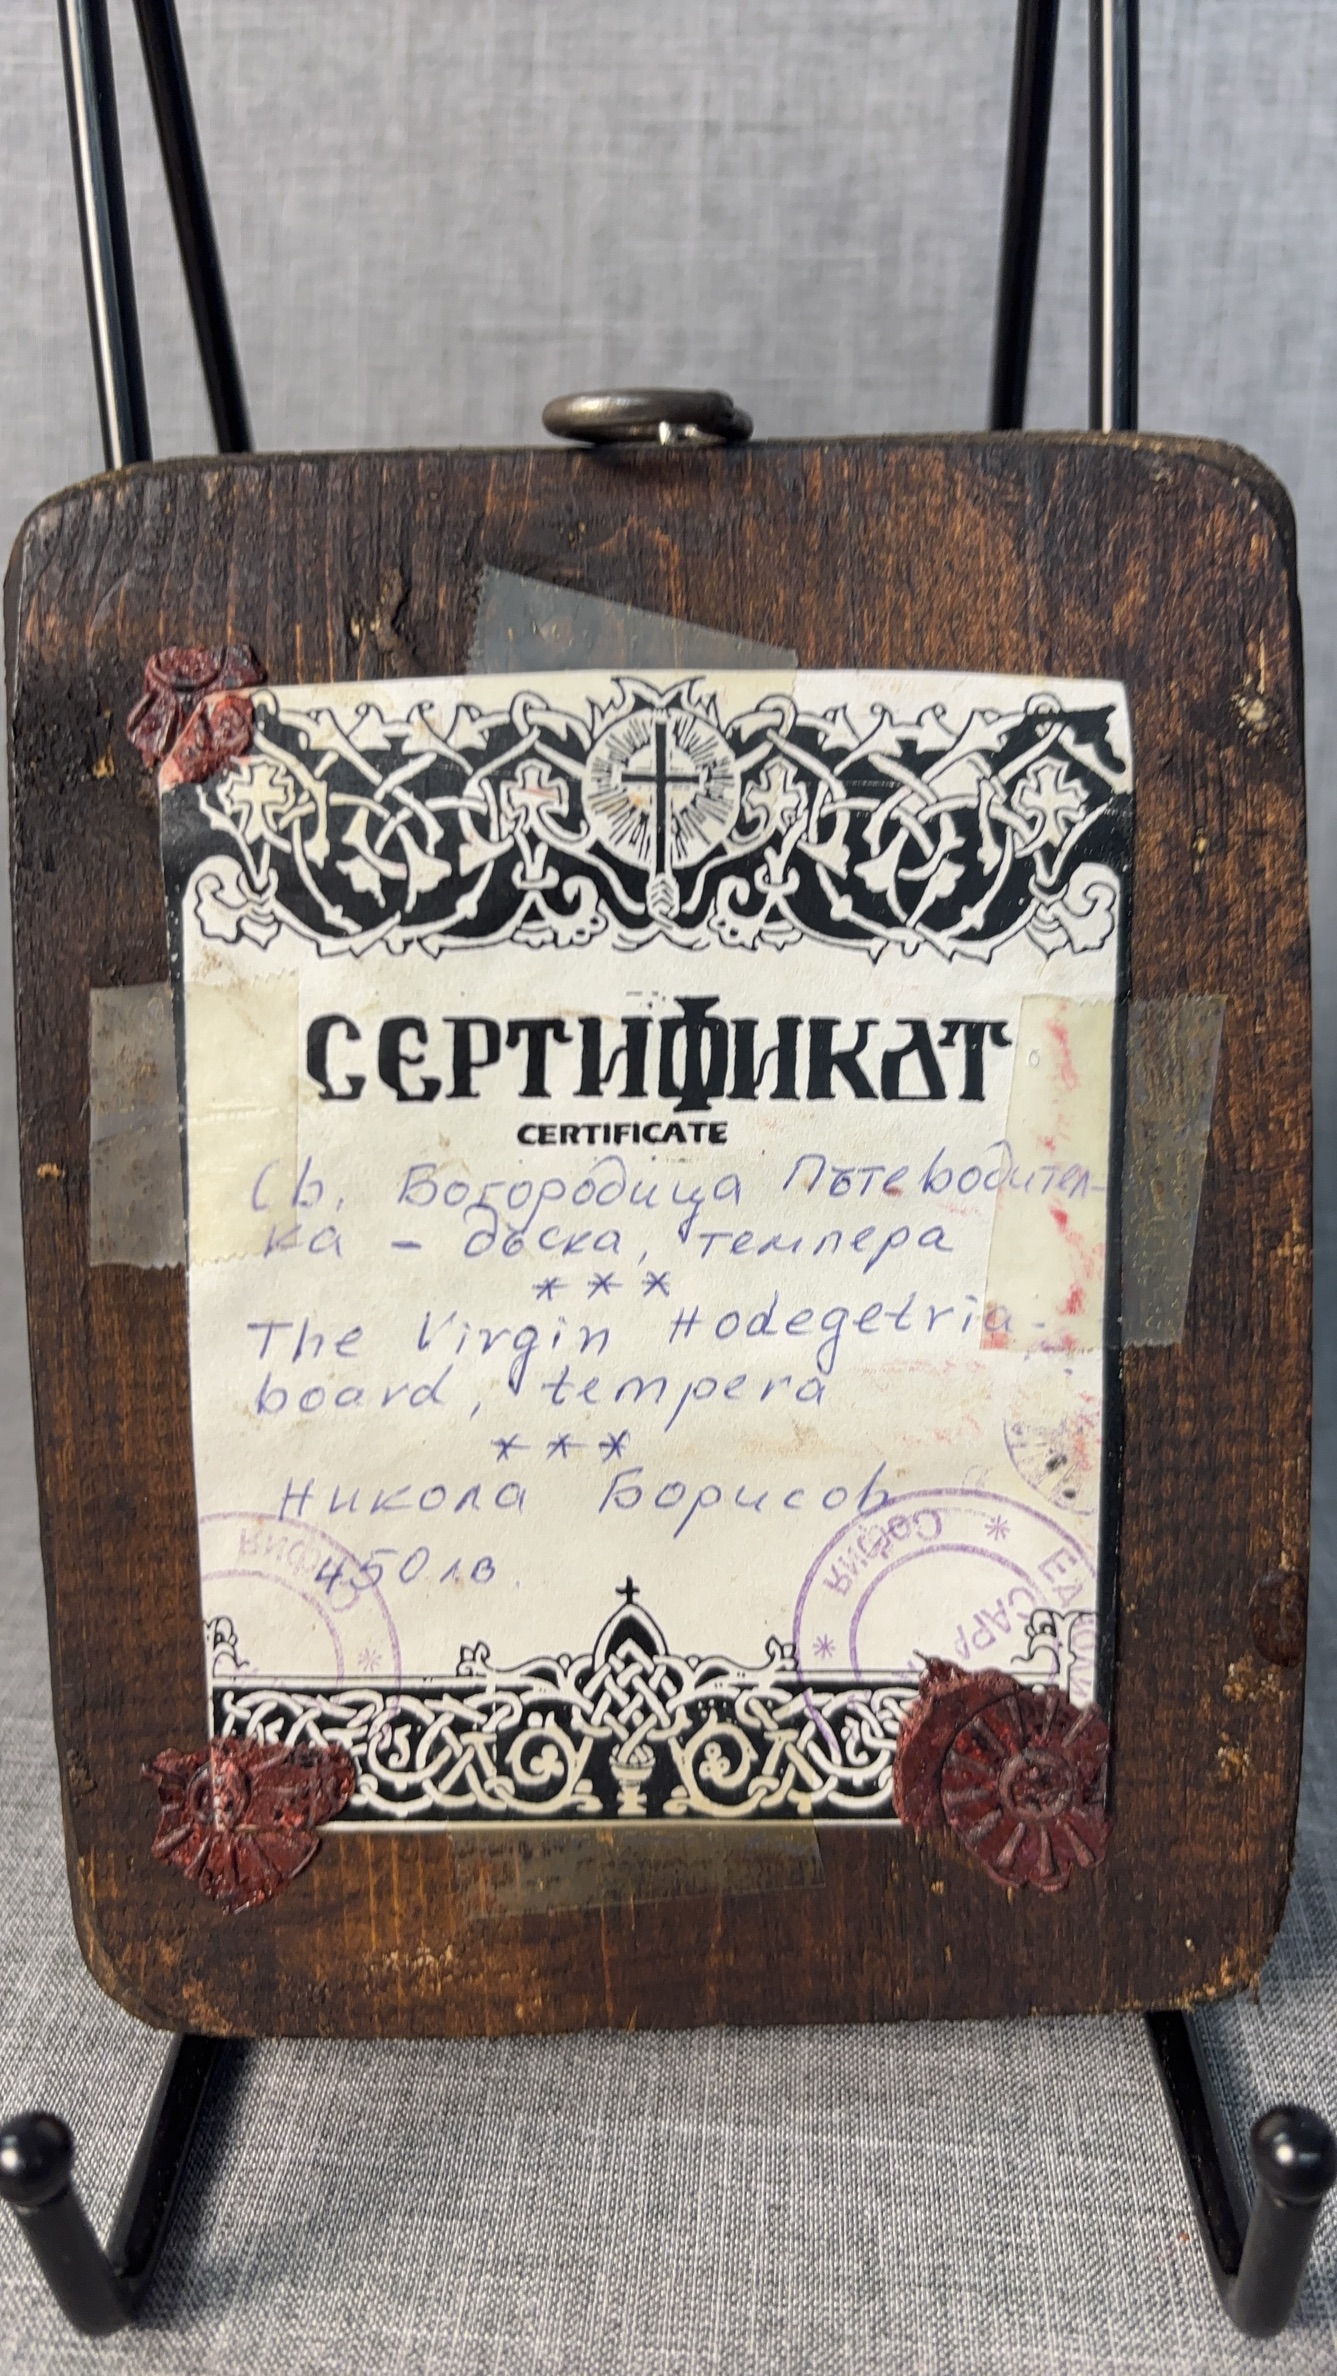 СЕРТИФИКАТ
CERTIFICATE
Св. Богородица Пътеводител-
ка – дъска, темпера
***
The Virgin Hodegetria -
board, tempera
***
Никола Борисов
450 лв.
София *
* София *